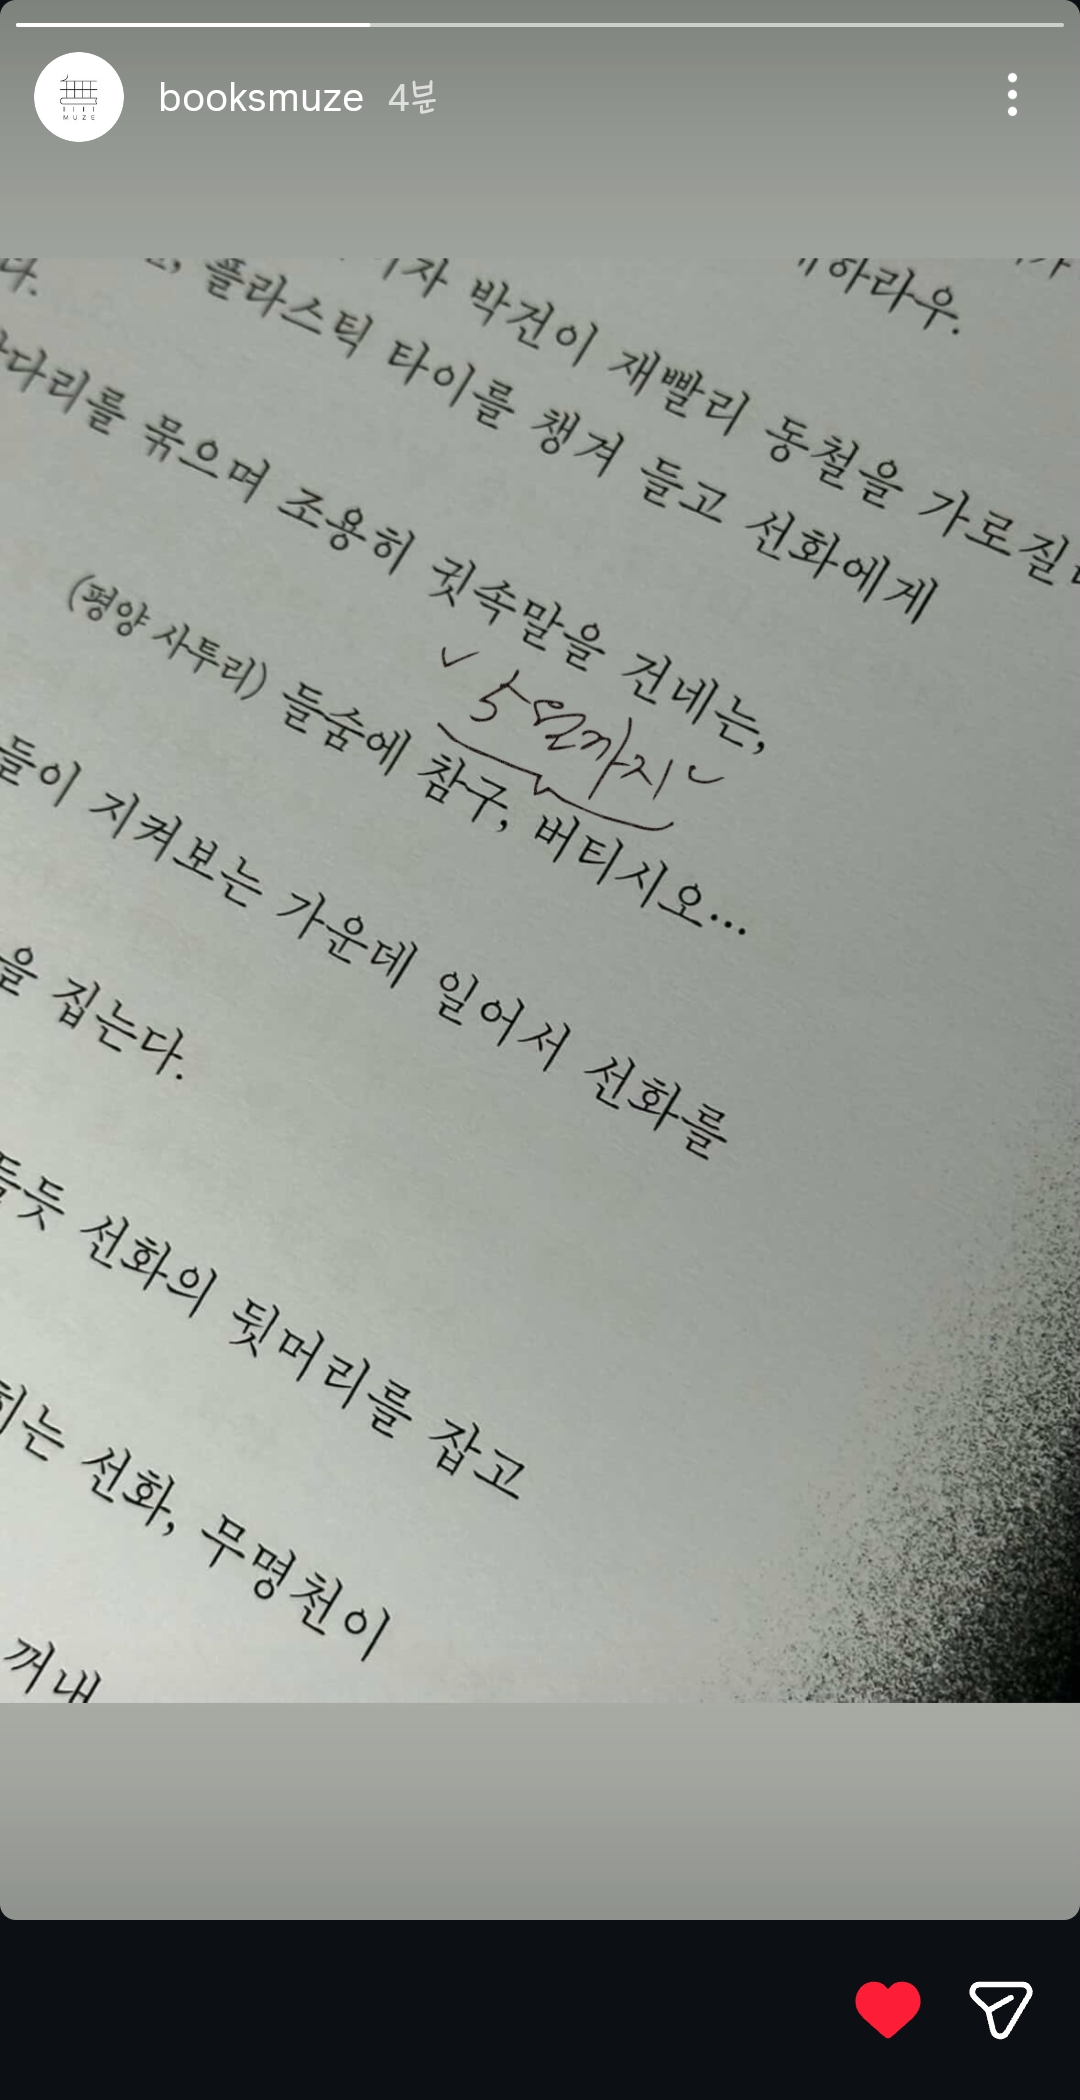 booksmuze 4분
MUZE
하라우.
박건이 재빨리 동철을
플라스틱 타이를 챙겨 들고 선화에게
다.
묶으며 조용히 귓속말을 건네는,
5일까지
(평양 사투리) 들숨에 참구, 버티시오...
들이 지켜보는 가운데 일어서 선화를
을 집는다.
선화의 뒷머리를 잡고
는 선화, 무명천이
꺼내